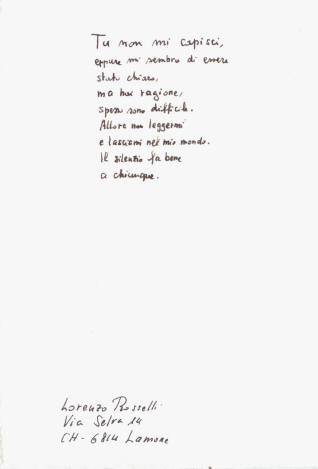 Tu non mi capisci,
eppure mi sembro di essere
stato chiaro,
ma hai ragione,
spesso sono difficile.
Allora non leggermi
e lasciami nel mio mondo.
Il silenzio fa bene
a chiunque.
Lorenzo Rosselli
Via Selva 14
CH - 6814 Lamone